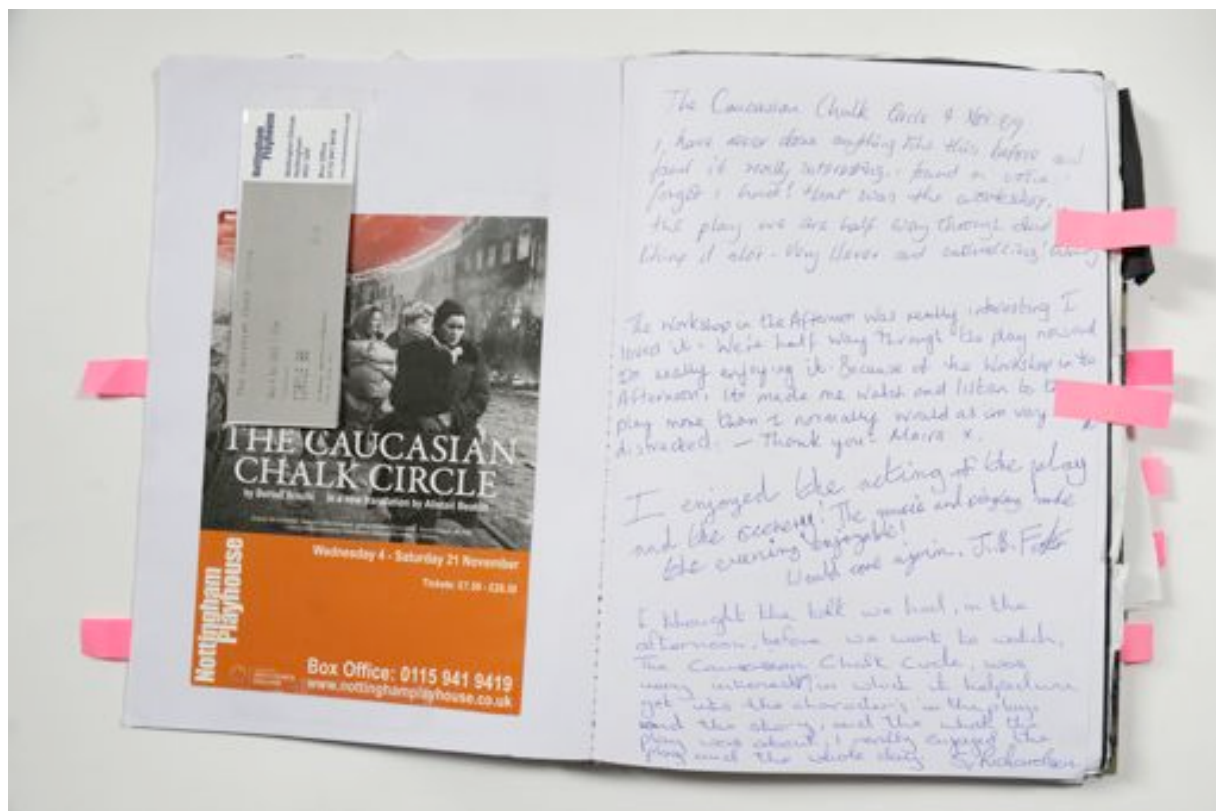 Nottingham
Playhouse
THE CAUCASIAN
CHALK CIRCLE
by Bertolt Brecht in a new translation by Alistair Beaton
Wednesday 4 - Saturday 21 November
Tickets: £7.50 - £26.50
Nottingham
Playhouse
Box Office: 0115 941 9419
www.nottinghamplayhouse.co.uk
The Caucasian Chalk Circle 9 Nov 09
I have never done anything like this before and
found it really interesting. found a
forgot i had! that was the workshop.
the play we are half way through and
liking it alot. Very clever and enthralling!
The Workshop in the Afternoon was really interesting I
loved it. We're half way through the play now and
im really enjoying it. Because of the Workshop in the
Afternoon, its made me watch and listen to the
play more than i normally would as im very
distracted. — Thank you! Maira x.
I enjoyed the acting of the play
and the scenery! The music and singing made
the evening enjoyable!
Would come again. J.B. Foster
I thought the talk we had, in the
afternoon, before we went to watch,
The Caucasian Chalk Circle, was
very interesting which it helped me
get into the characters in the plays
and the story, and the what the
play were about, I really enjoyed the
play and the whole day. Richardson